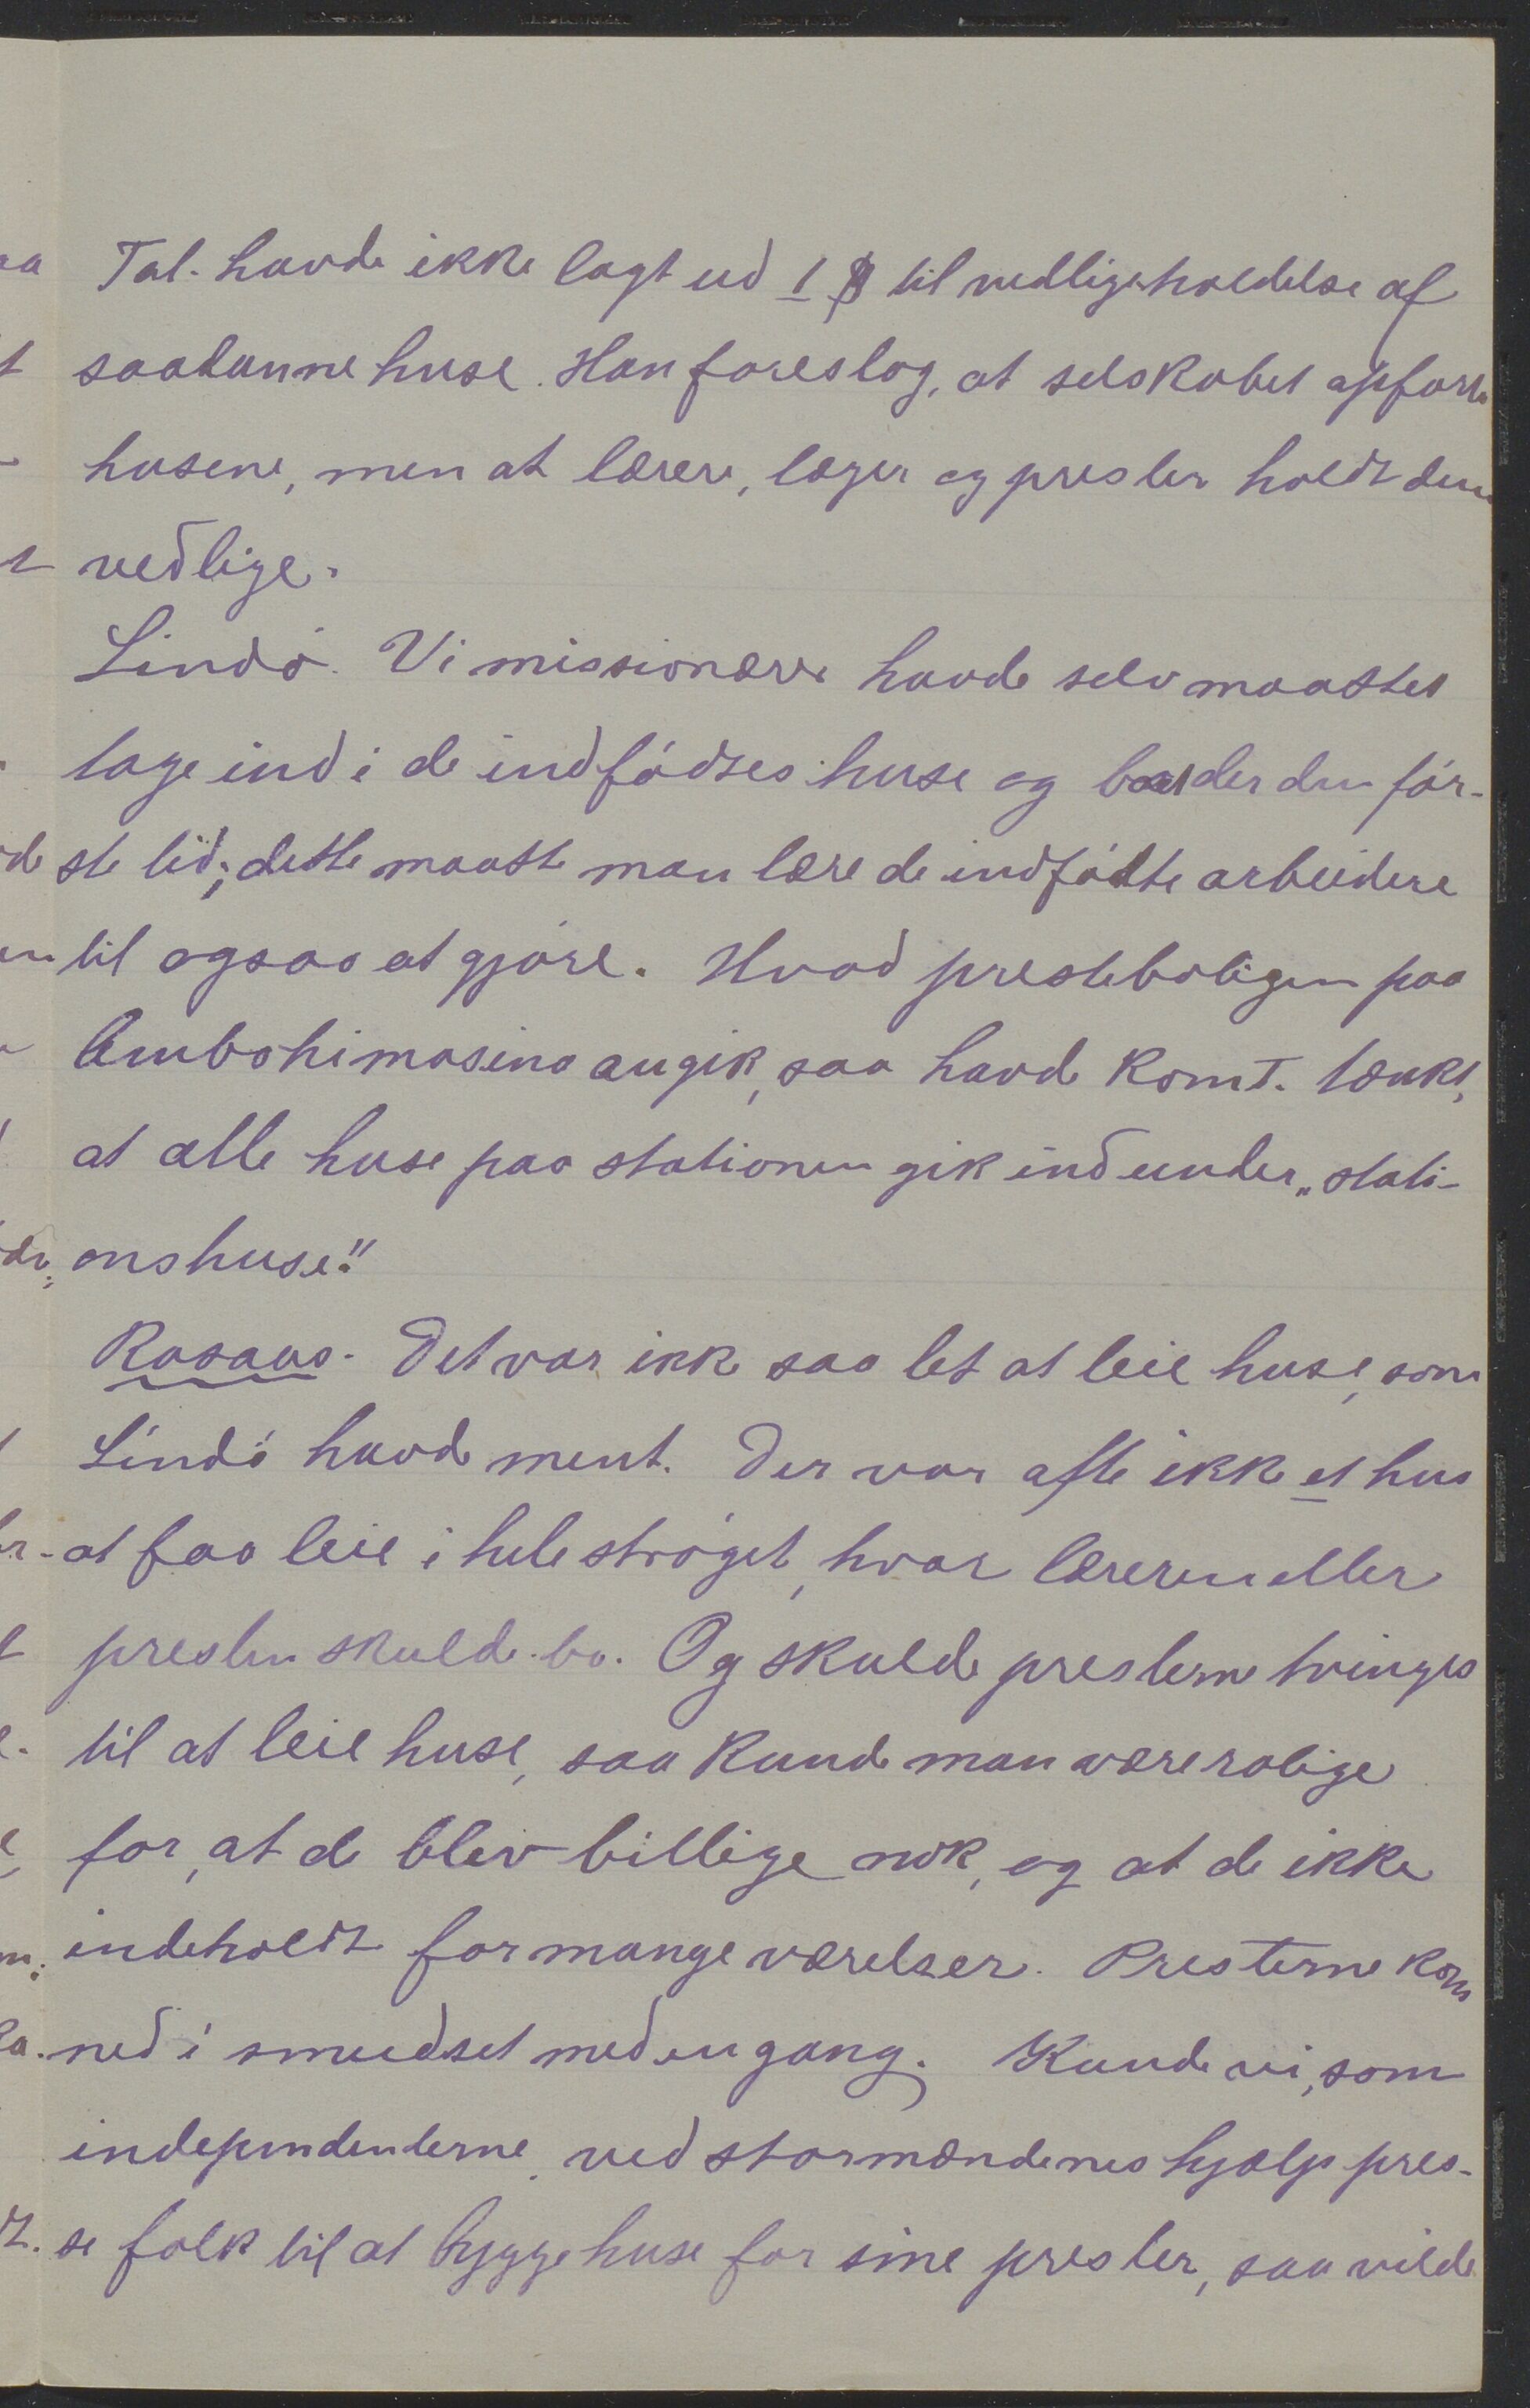 Tal. havde ikke lagt ud 1 $ til vedligeholdelse af
saadanne huse. Han foreslog, at selskabet opførte
husene, men at lærere, læger og prester holdt dem
vedlige.
Lindø. Vi missionærer havde selv maattet
tage ind i de indfødtes huse og bo der den før-
ste tid; dette maatte man lære de indfødte arbeidere
til ogsaa at gjøre. Hvad presteboligen paa
Ambohimasina angik, saa havde Komt. tænkt,
at alle huse paa stationen gik ind under „stati-
onshuse."
Rosaas. Det var ikke saa let at leie huse, som
Lindø havde ment. Der var ofte ikke et hus
at faa leie i hele strøget, hvor læreren eller
presten skulde bo. Og skulde presterne tvinges
til at leie huse, saa kunde man være rolige
for, at de blev billige nok, og at de ikke
indeholdt for mange værelser. Presterne kom
ned i smudset med en gang. Kunde vi, som
independenterne, ved stormændenes hjælp pres-
se folk til at bygge huse for sine prester, saa vilde